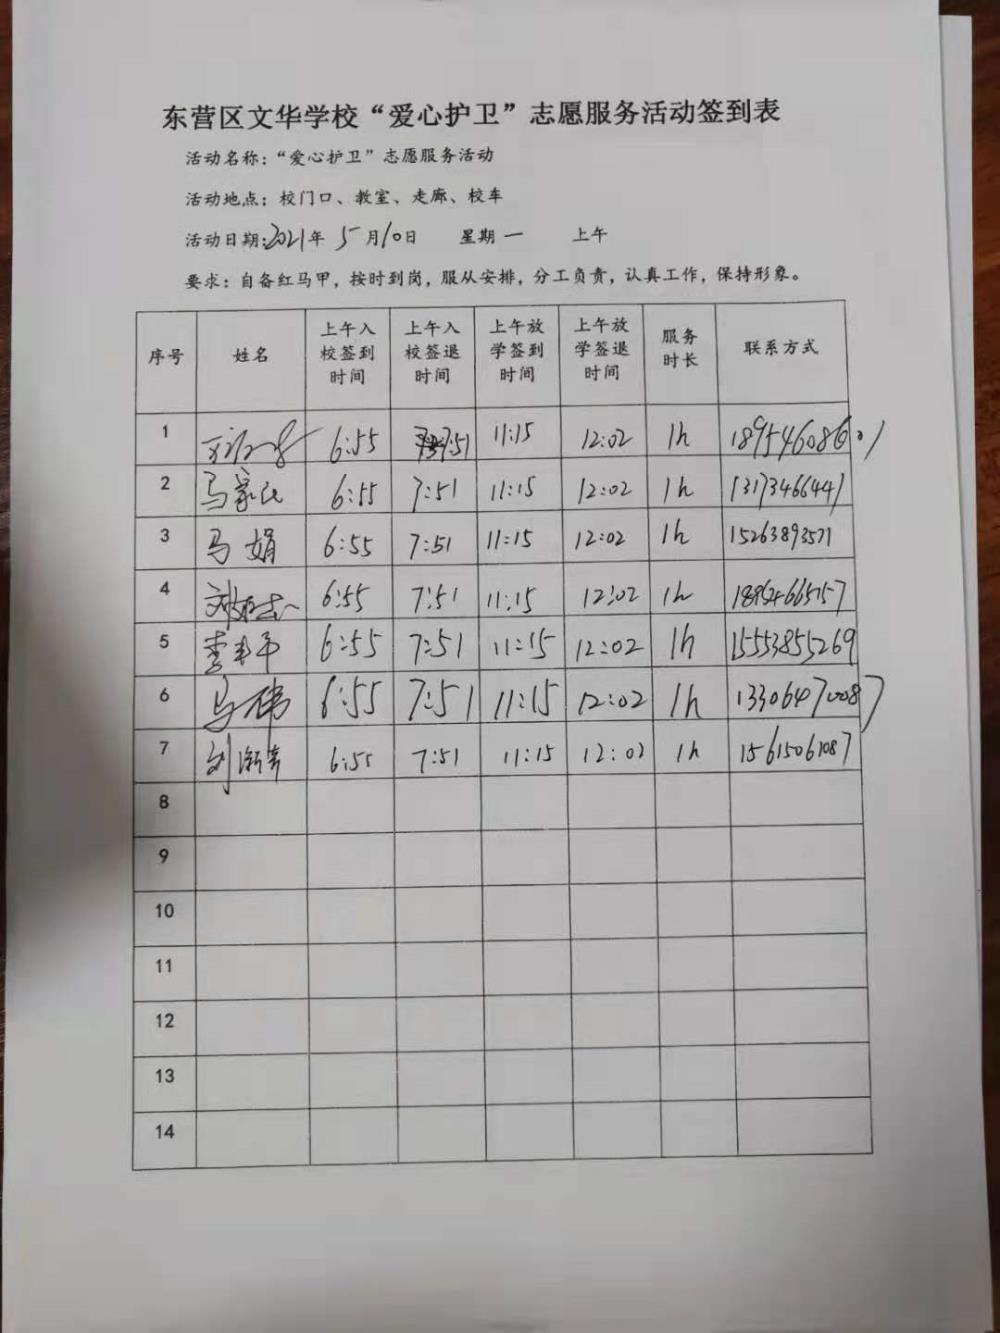 东营区文华学校“爱心护卫”志愿服务活动签到表
活动名称:“爱心护卫”志愿服务活动
活动地点:校门口、教室、走廊、校车
活动日期:2021年 5月10日 星期一 上午
要求:自备红马甲,按时到岗,服从安排,分工负责,认真工作,保持形象。
序号 姓名 上午入校签到时间 上午入校签退时间 上午放学签到时间 上午放学签退时间 服务时长 联系方式
1 6:55 7:51 11:15 12:02 1h 18954608601
2 马家民 6:55 7:51 11:15 12:02 1h 13173466441
3 马娟 6:55 7:51 11:15 12:02 1h 15263893571
4 6:55 7:51 11:15 12:02 1h 18954665157
5 6:55 7:51 11:15 12:02 1h 15553855269
6 马伟 6:55 7:51 11:15 12:02 1h 13306470087
7 6:55 7:51 11:15 12:02 1h 15615061087
8
9
10
11
12
13
14